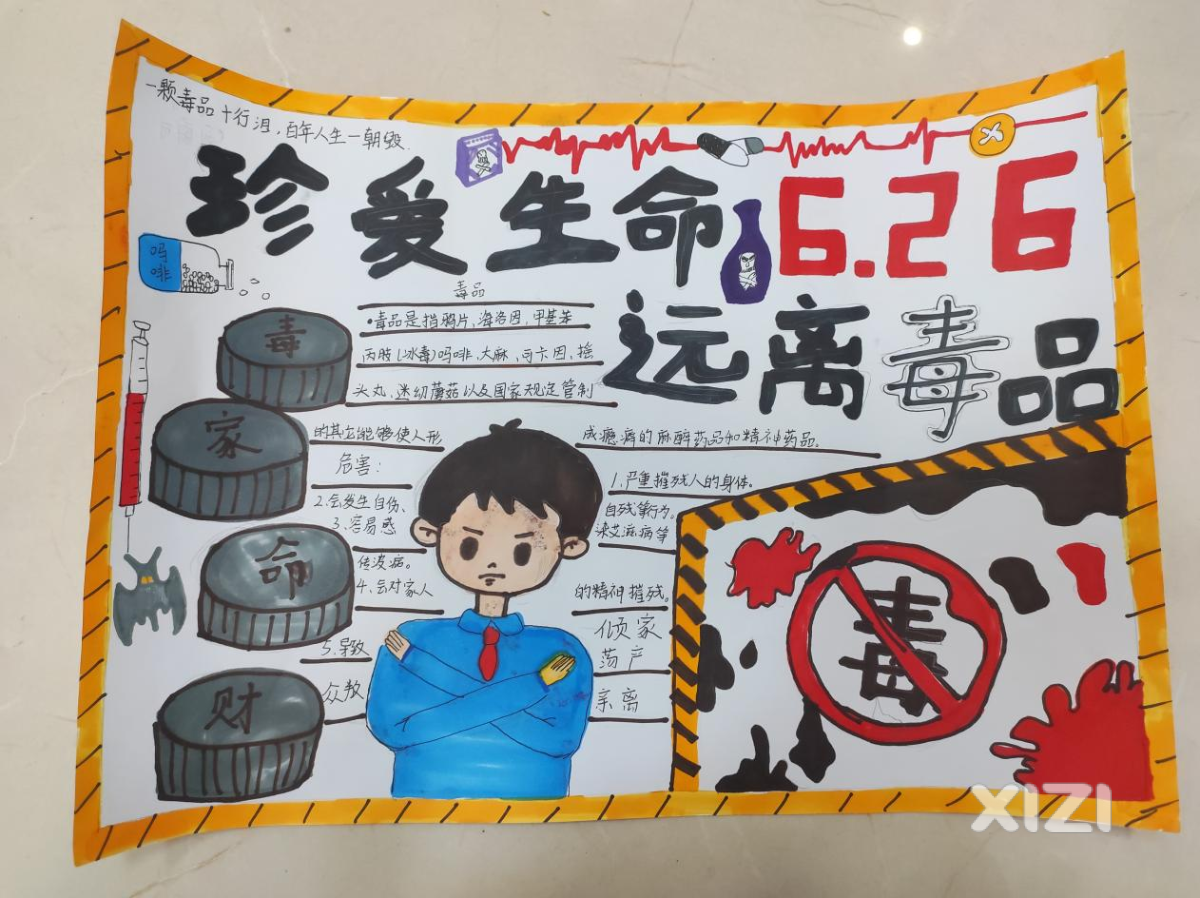 一颗毒品十行泪，百年人生一朝毁.
珍爱生命 6.26
远离毒品
吗啡
毒品
•毒品是指鸦片，海洛因，甲基苯
丙胺(冰毒)吗啡，大麻，可卡因，摇
头丸，迷幻蘑菇以及国家规定管制
的其它能够使人形 成瘾癖的麻醉药品和精神药品.
危害：
1.严重摧残人的身体。
2.会发生自伤、 自残等行为。
3.容易感 染艾滋病等
传染病。
4.会对家人 的精神摧残。
5.导致 倾家
荡产
众散 亲离
毒
家
命
财
毒
XIZI